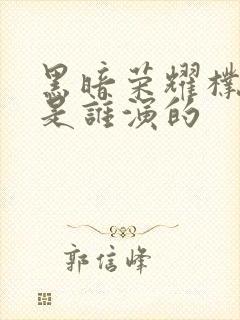 黑暗荣耀樸
是誰演的
郭信峰